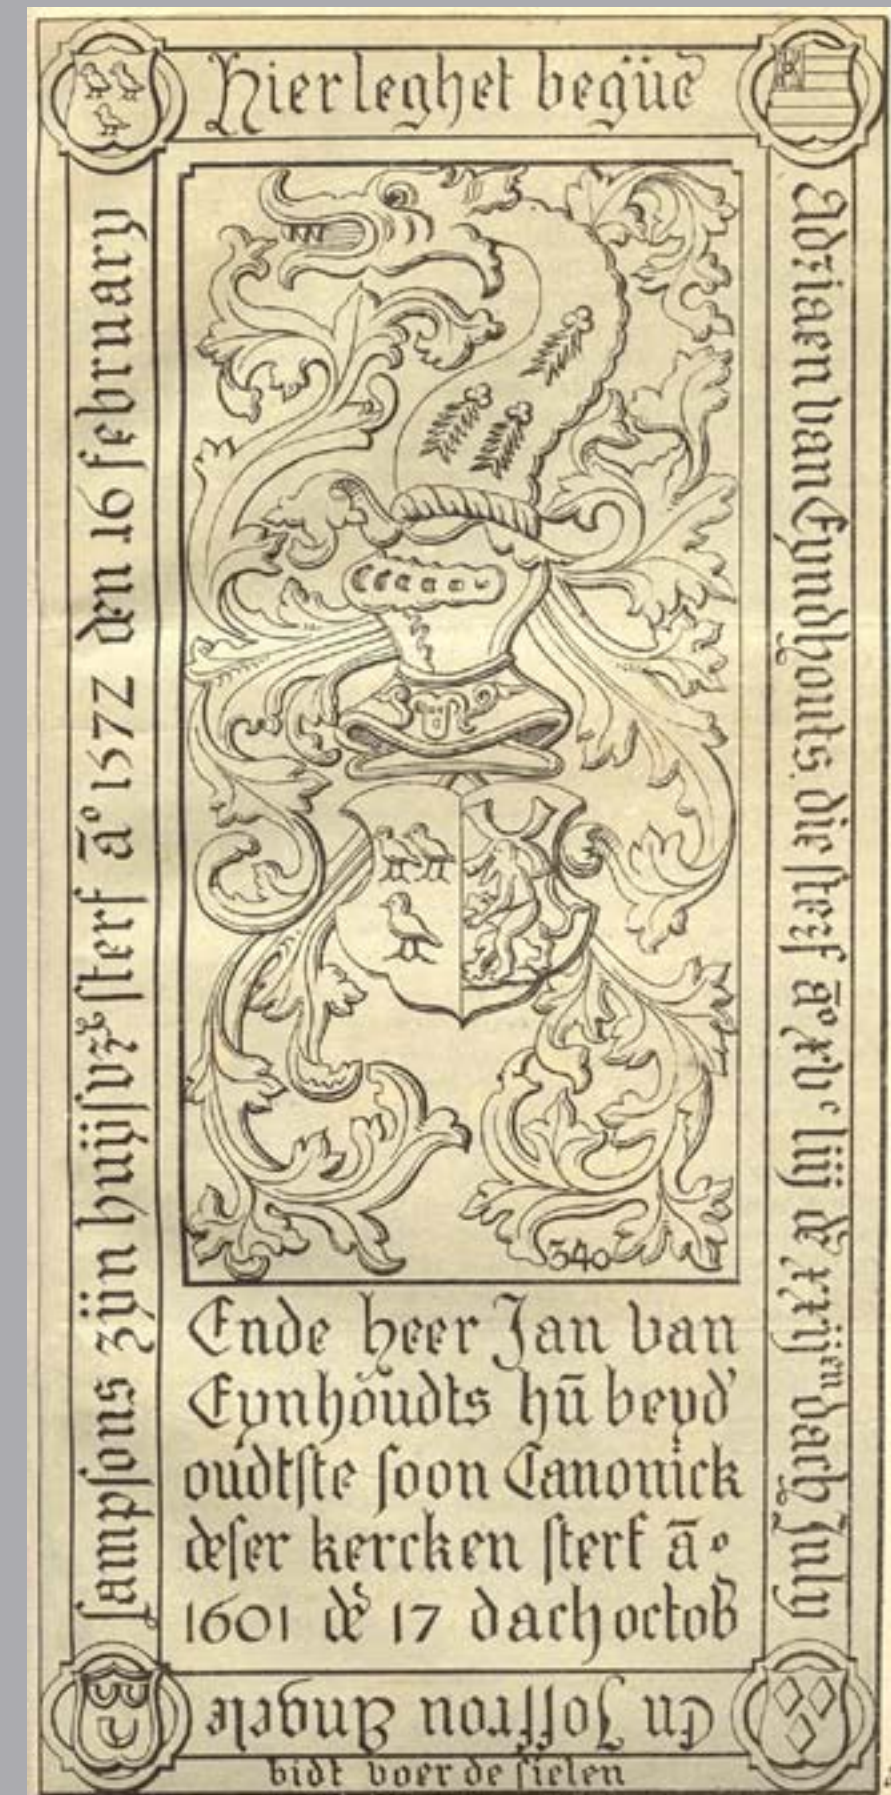 Hier leghet begüē
Adriaen van Eyndhouts. die sterf a͞o xvᶜ liij dē xxijᵉⁿ dach July
En Joffrou Angele
sampsons zÿn huÿsvrͦ sterf āº 1572 den 16 february
340
Ende heer Jan van
Eynhoudts hū beyd'
oudtste soon Canonick
deser kercken sterf āº
1601 dē 17 dach octob
bidt voer de sielen